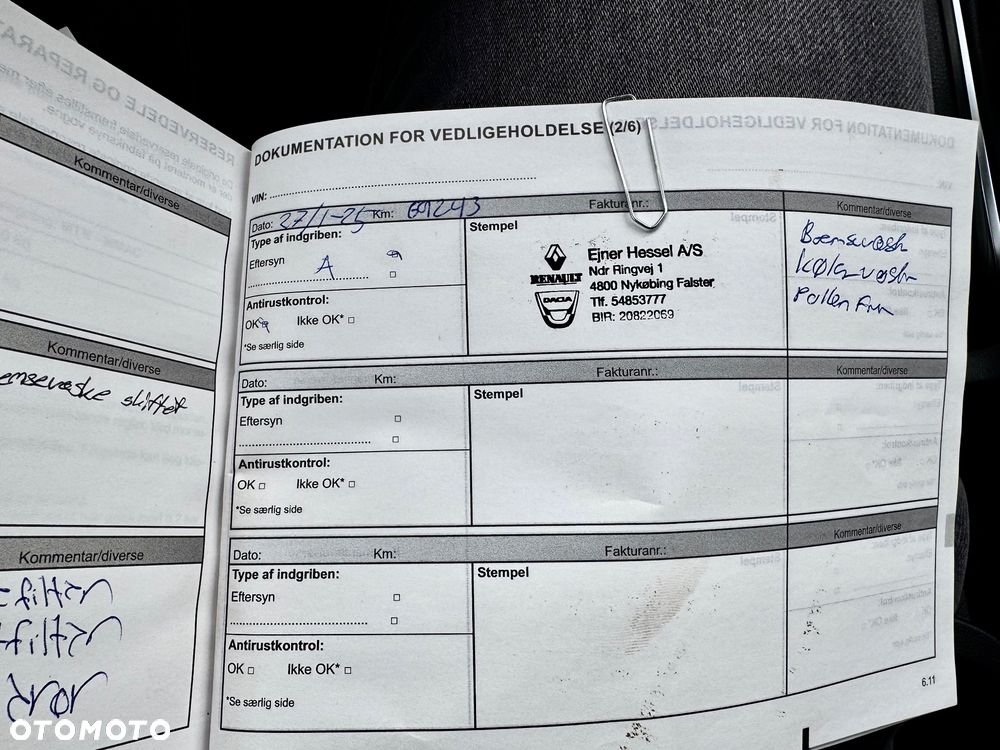 RESERVEDELE OG REPARA
Kommentar/diverse
Kommentar/diverse
emsevæske skiftet
Kommentar/diverse
DOKUMENTATION FOR VEDLIGEHOLDELSE (2/6)
VIN:
Dato: 27/1-25 Km: 69243 Fakturanr.: Kommentar/diverse
Type af indgriben:
Stempel
Eftersyn A
Ejner Hessel A/S
Ndr Ringvej 1
4800 Nykøbing Falster
Tlf. 54853777
BIR: 20822069
RENAULT
DACIA
Bremsevæsk
Kølervæsk
Pollen
Antirustkontrol:
OK Ikke OK*
*Se særlig side
Dato: Km: Fakturanr.: Kommentar/diverse
Type af indgriben:
Stempel
Eftersyn
Antirustkontrol:
OK Ikke OK*
*Se særlig side
Dato: Km: Fakturanr.: Kommentar/diverse
Type af indgriben:
Stempel
Eftersyn
Antirustkontrol:
OK Ikke OK*
*Se særlig side
6.11
OTOMOTO